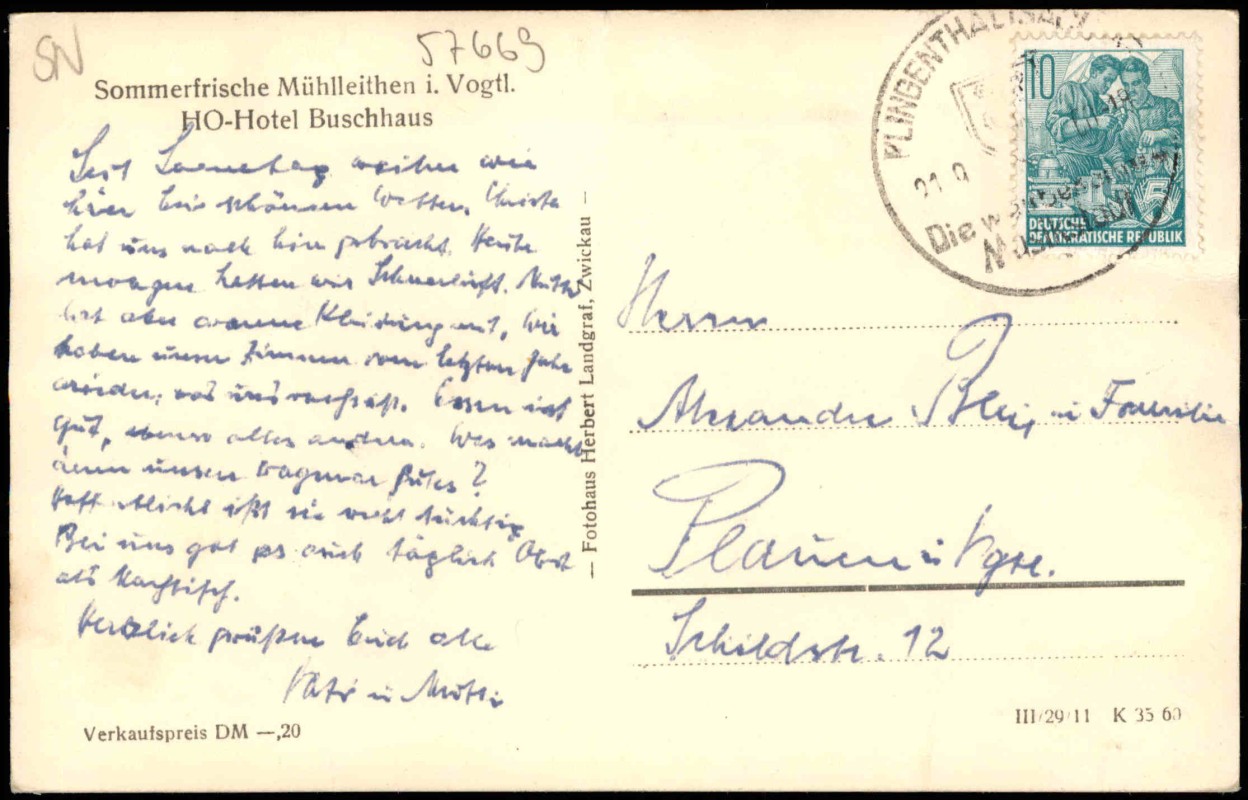 SN
57669
Sommerfrische Mühlleithen i. Vogtl.
HO-Hotel Buschhaus
Seit Sonnabend weilen wir
hier bei schönem Wetter. Christa
hat uns nach hier gebracht. Heute
morgen hatten wir Schneeluft. Mutti
hat aber warme Kleidung mit, wir
haben unser Zimmer vom letzten Jahr
wieder, was uns
Essen ist
gut, ebenso alles andere. Was macht
denn unsere Dagmar Gutes?
Hoffentlich ißt sie recht tüchtig
Bei uns gibt es auch täglich Obst
als Nachtisch.
Herzlich grüßen Euch alle
Vati u Mutti
Verkaufspreis DM —,20
— Fotohaus Herbert Landgraf, Zwickau —
KLINGENTHAL (SACHS)
21.9
Die
Musikstadt
10
DEUTSCHE
DEMOKRATISCHE REPUBLIK
5
Herrn
Alexander
u Familie
Plauen i Vgtl.
Schildstr. 12
III/29/11 K 35 60